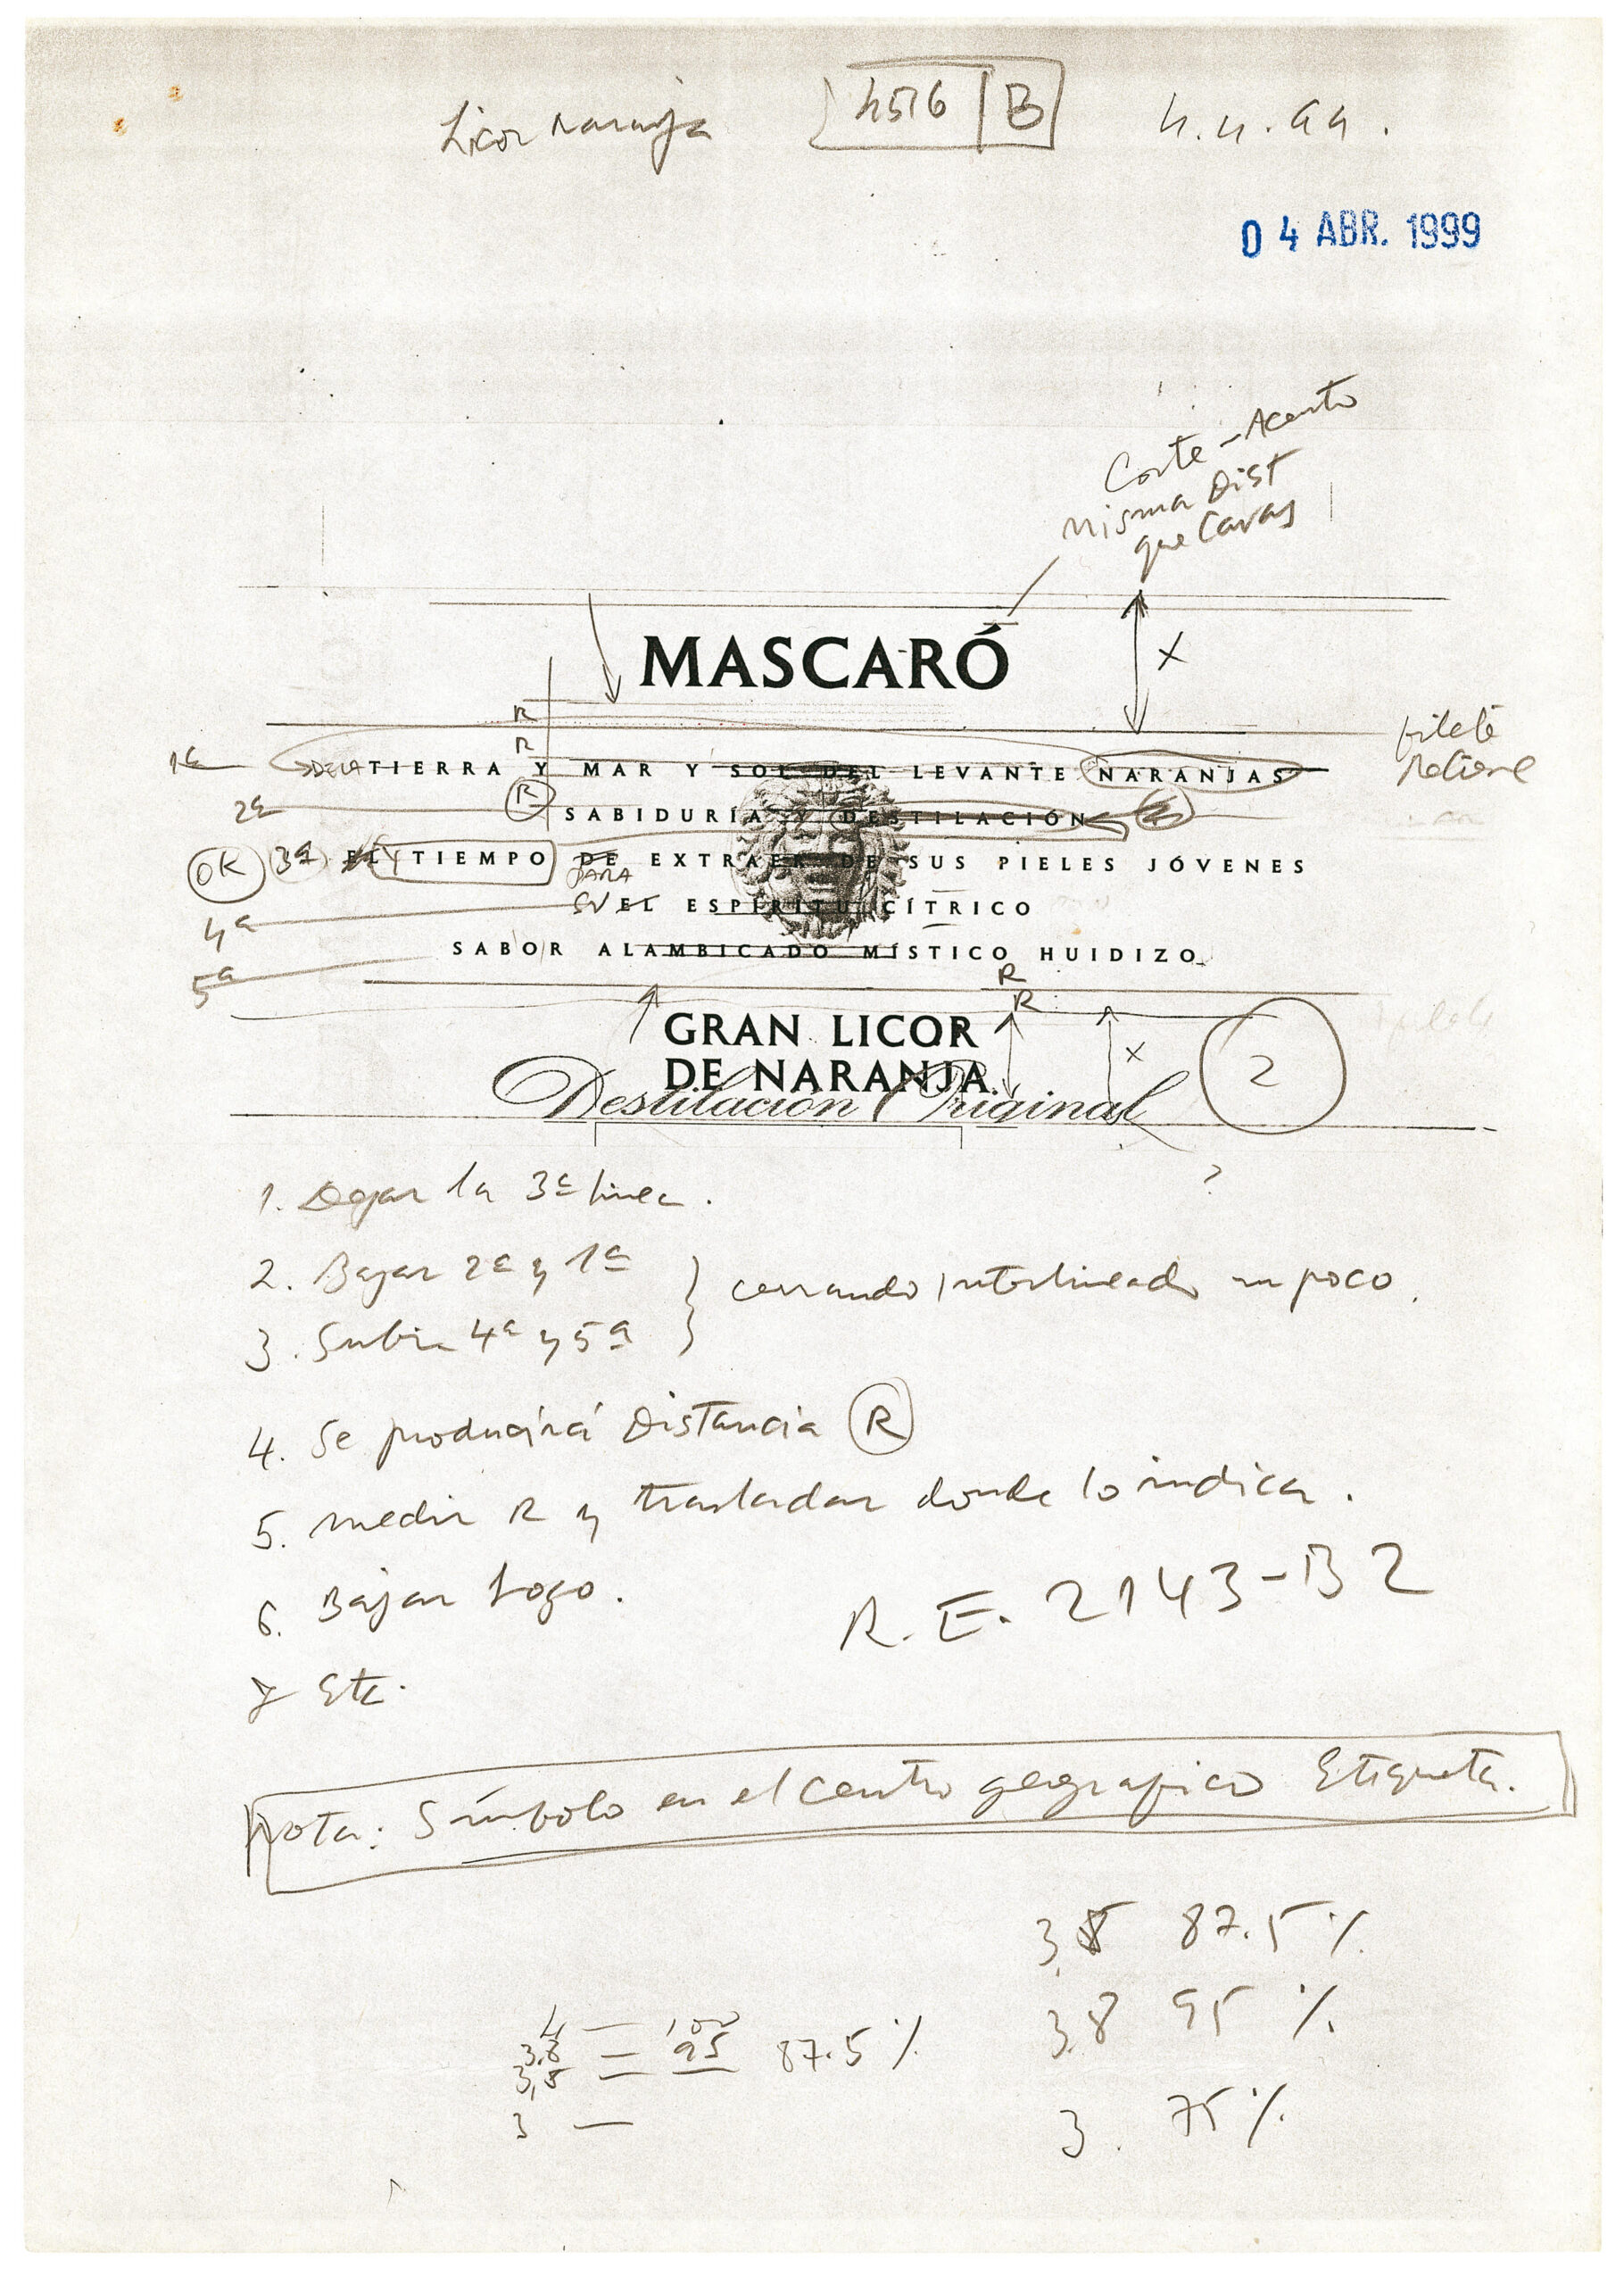 Licor Naranja 4516 B 4.4.99.
04 ABR. 1999
Corte - Acento
misma Dist
que Cavas
MASCARÓ
X
R
R
filete
1ª DE LA TIERRA Y MAR Y SOL DEL LEVANTE NARANJAS
2ª R SABIDURÍA Y DESTILACIÓN
OK 3ª EL Y TIEMPO DE EXTRAER DE SUS PIELES JÓVENES
PARA
4ª SU EL ESPÍRITU CÍTRICO
5ª SABOR ALAMBICADO MÍSTICO HUIDIZO
R
R
GRAN LICOR
DE NARANJA
X
2
Destilación Original
?
1. Dejar la 3ª linea.
2. Bajar 2ª y 1ª
cerrando interlineado un poco.
3. Subir 4ª y 5ª
4. Se producirá Distancia R
5. medir R y trasladar donde lo indica.
6. Bajar Logo.
R.E. 2143-B2
y Etc.
Nota: Símbolo en el centro geografico Etiqueta.
3,5 87.5%
3,8 95%
3. 75%
4 — 100
3,8 = 95 87.5%
3,5 =
3 —